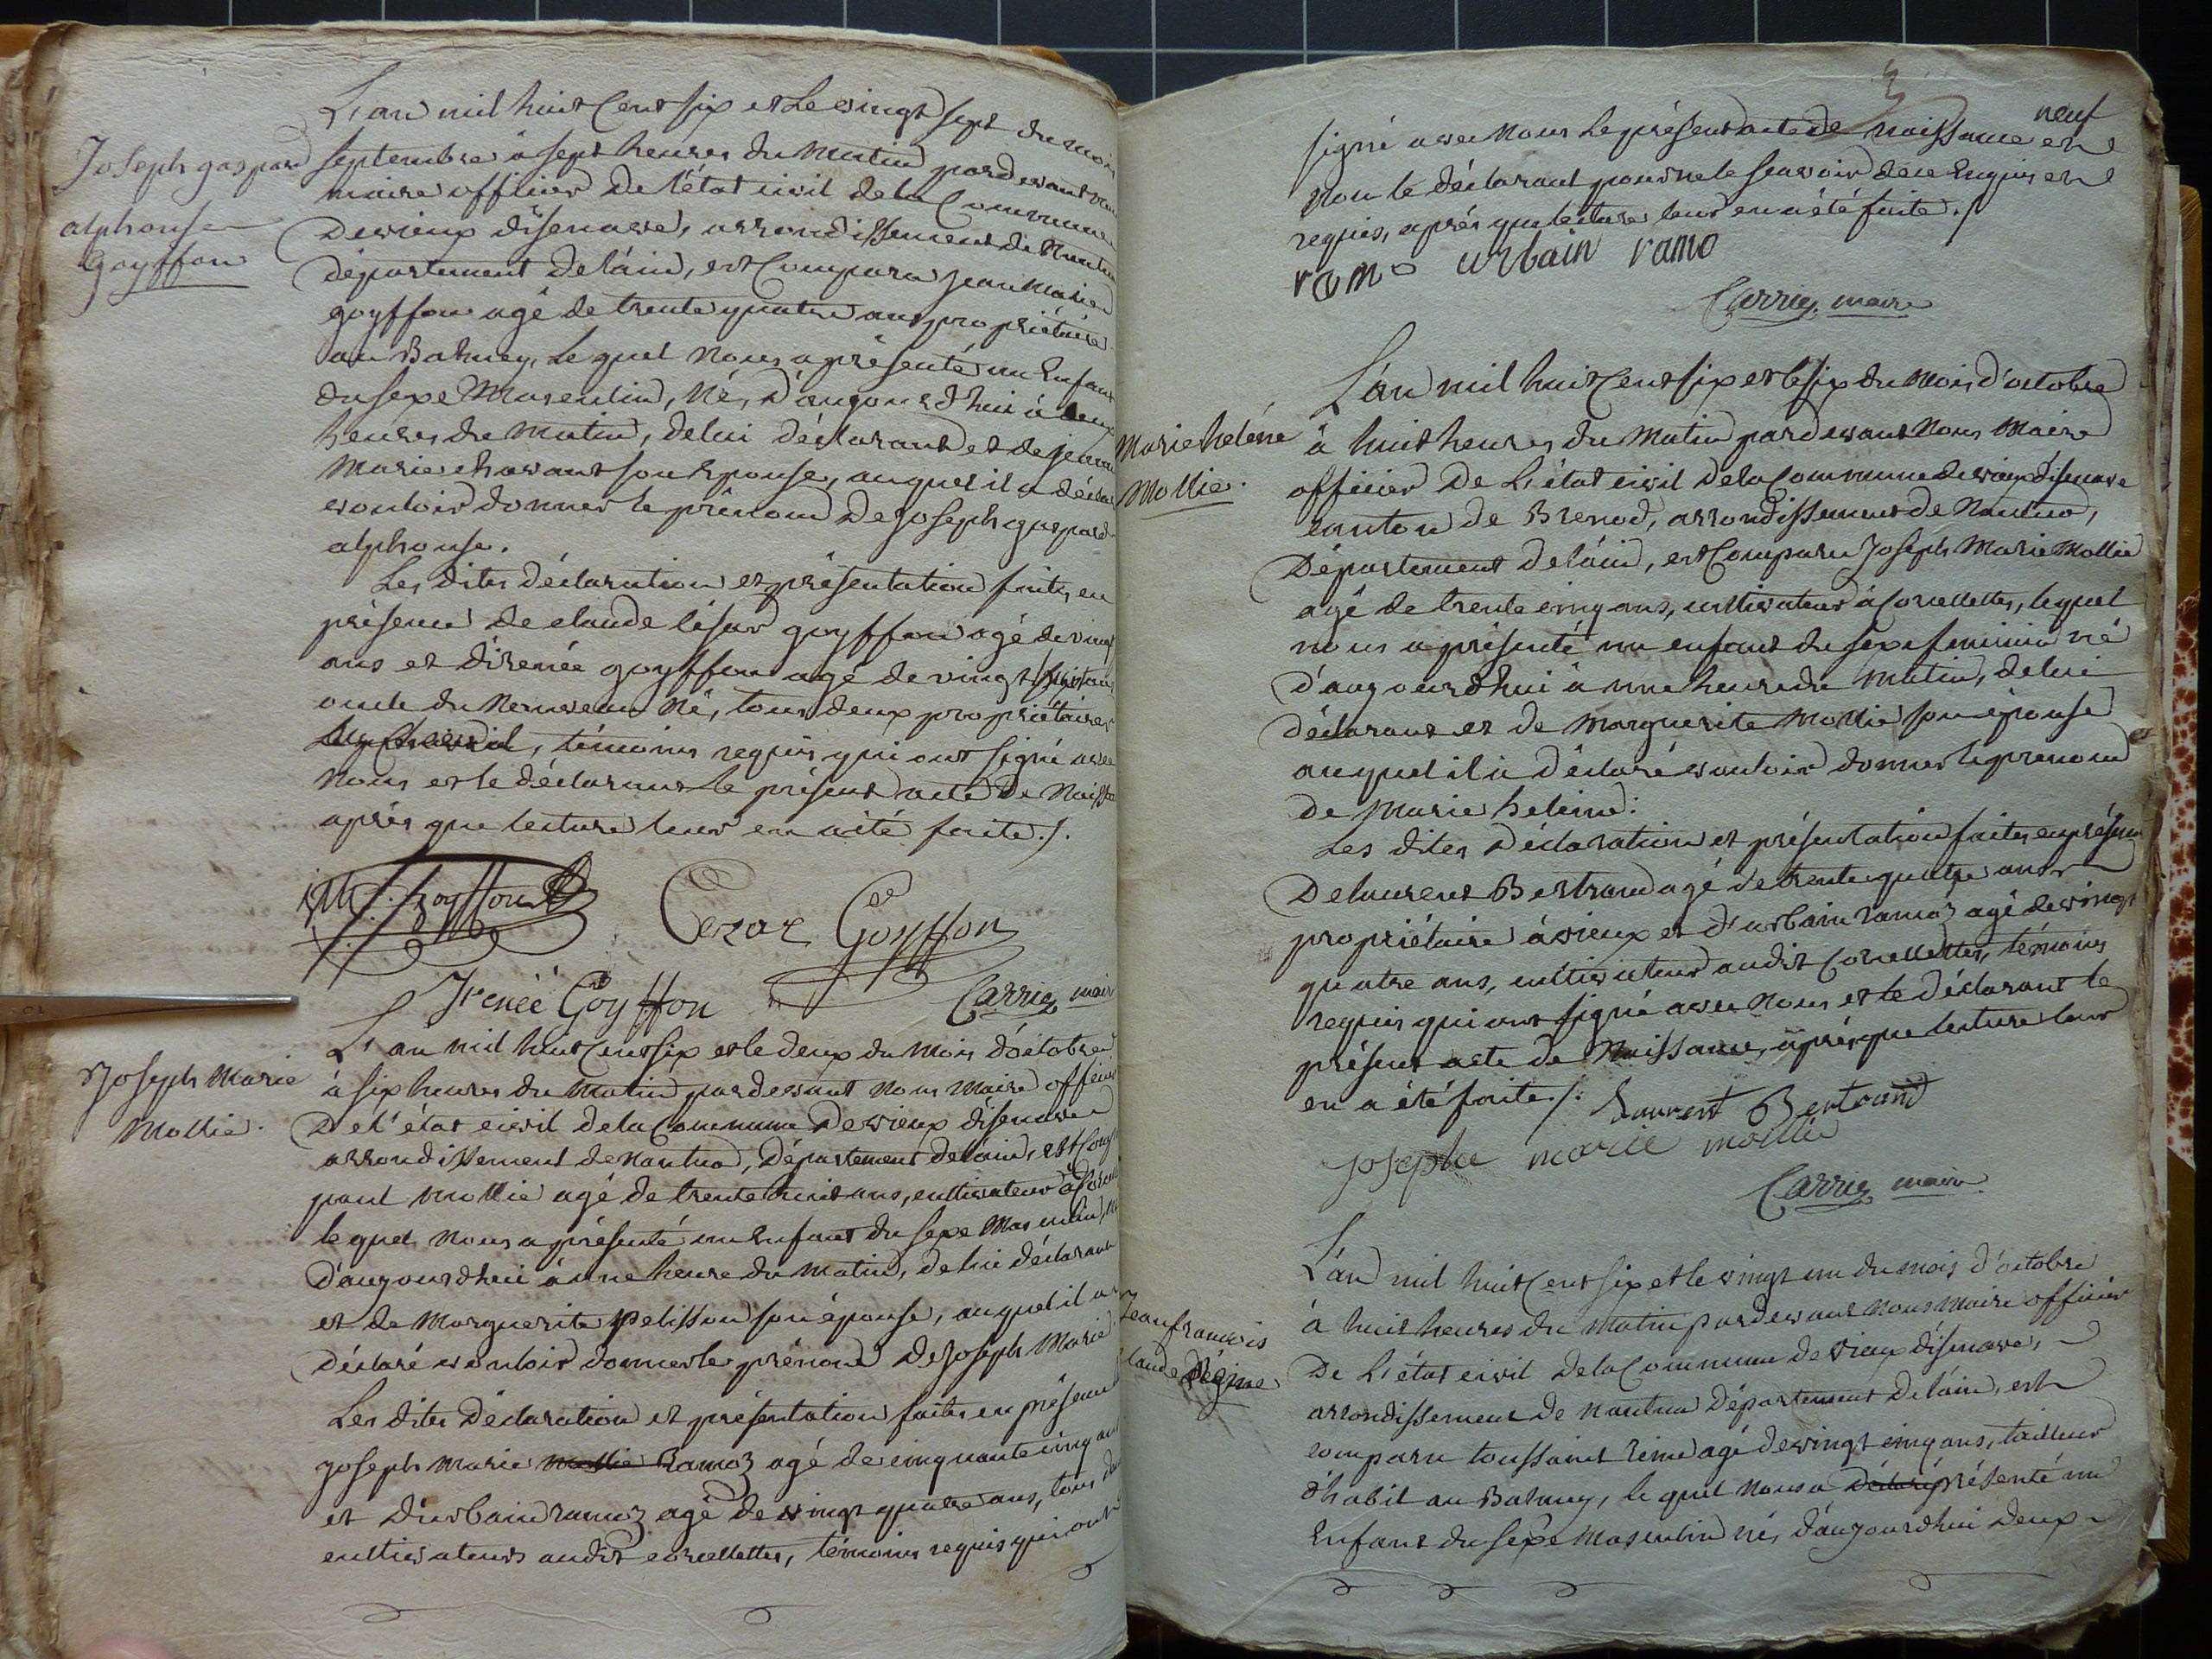 Joseph gaspard
alphonse
Goyffon
L'an mil huit Cent six et Le vingt sept du mois
septembre à sept heures du Matin pardevant nous
maire officier de l'état civil de la Commune
De vieux disenave, arrondissement de Nantua
département de lain, est Comparu jean Marie
goyffon agé de trente quatre ans propriétaire
au Balmey, Le quel Nous a présenté un Enfant
du sexe Masculin, Né, D'aujourd'hui à deux
heures du Matin, de lui déclarant et de jeanne
Marie chavant son Epouse, auquel il a décla
vouloir donner le prénom De joseph gaspard
alphonse.
Les dites déclaration et présentation faites en
présence de claude César goyffon agé de vingt
ans et direnée goyffon agé de vingt huit ans
oncle du Nouveau Né, tous deux propriétaires
témoins requis qui ont signé avec
nous et le déclarant le présent acte de Naissa
après que lecture leur en a été faite ./.
Goyffon
Cezar Goyffon
Irenée Goyffon
Carrier maire
Joseph Marie
Mollie.
L'an mil huit Cent six et le deux du Mois d'octobre
à six heures du Matin pardevant Nous Maire officier
De l'état civil de la Commune De vieux disenave
arrondissement de Nantua, Département de lain, est Comp
paul Mollie agé de trente huit ans, cultivateur à Corcell
le quel nous a présenté un Enfant du sexe Masculin, né
d'aujourdhui à une heure du Matin, de lui déclarant
et de Marguerite pelisson son épouse, auquel il a
Déclaré vouloir donner le prénom De joseph Marie
Les dites Déclaration et présentation faites en présence
joseph Marie Mollie Ramoz agé de cinquante cinq ans
et Durbain ramoz agé de vingt quatre ans, tous deux
cultivateurs audit corcellettes, témoins requis qui ont
neuf
signé avec Nous Le présent acte de Naissance et
non le déclarant pour ne le scavoir de ce Enquis et
requis, après que lecture leur en a été faite ./
ramo urbain ramo
Carrier maire
Marie heléne
Mollie.
L'an mil huit Cent six et le six du Mois d'octobre
à huit heures du Matin pardevant Nous Maire
officier De L'état civil De la Commune de vieux disenave
canton de Brenod, arrondissement de Nantua,
Département de lain, est Comparu Joseph Marie Mollie
agé de trente cinq ans, cultivateur à Corcellettes, lequel
nous a présenté un enfant du sexe feminin né
d'aujourdhui à une heure du Matin, de lui
déclarant et de Marguerite Mollie son épouse
auquel il a déclaré vouloir donner le prenom
de Marie heléne:
Les dites Déclaration et présentation faites en présence
De laurent Bertrand agé de trente quatre ans
propriétaire à vieux et d'urbain ramoz agé de vingt
quatre ans, cultivateur audit Corcellettes, témoins
requis qui ont signé avec Nous et le déclarant le
présent acte de Naissance, après que lecture leur
en a été faite ./.
Laurent Bertrand
josephe marie mollie
Carrier maire
Jean francois
Claude Régime
L'an mil huit Cent six et le vingt un du mois d'octobre
à huit heures du Matin pardevant Nous Maire officier
De L'état civil De la Commune de vieux disenave,
arrondissement de Nantua Département de lain, est
comparu toussaint agé de vingt cinq ans, tailleur
d'habit au Balmey, le quel Nous a déclaré présenté un
Enfant du sexe Masculin né, d'aujourdhui deux